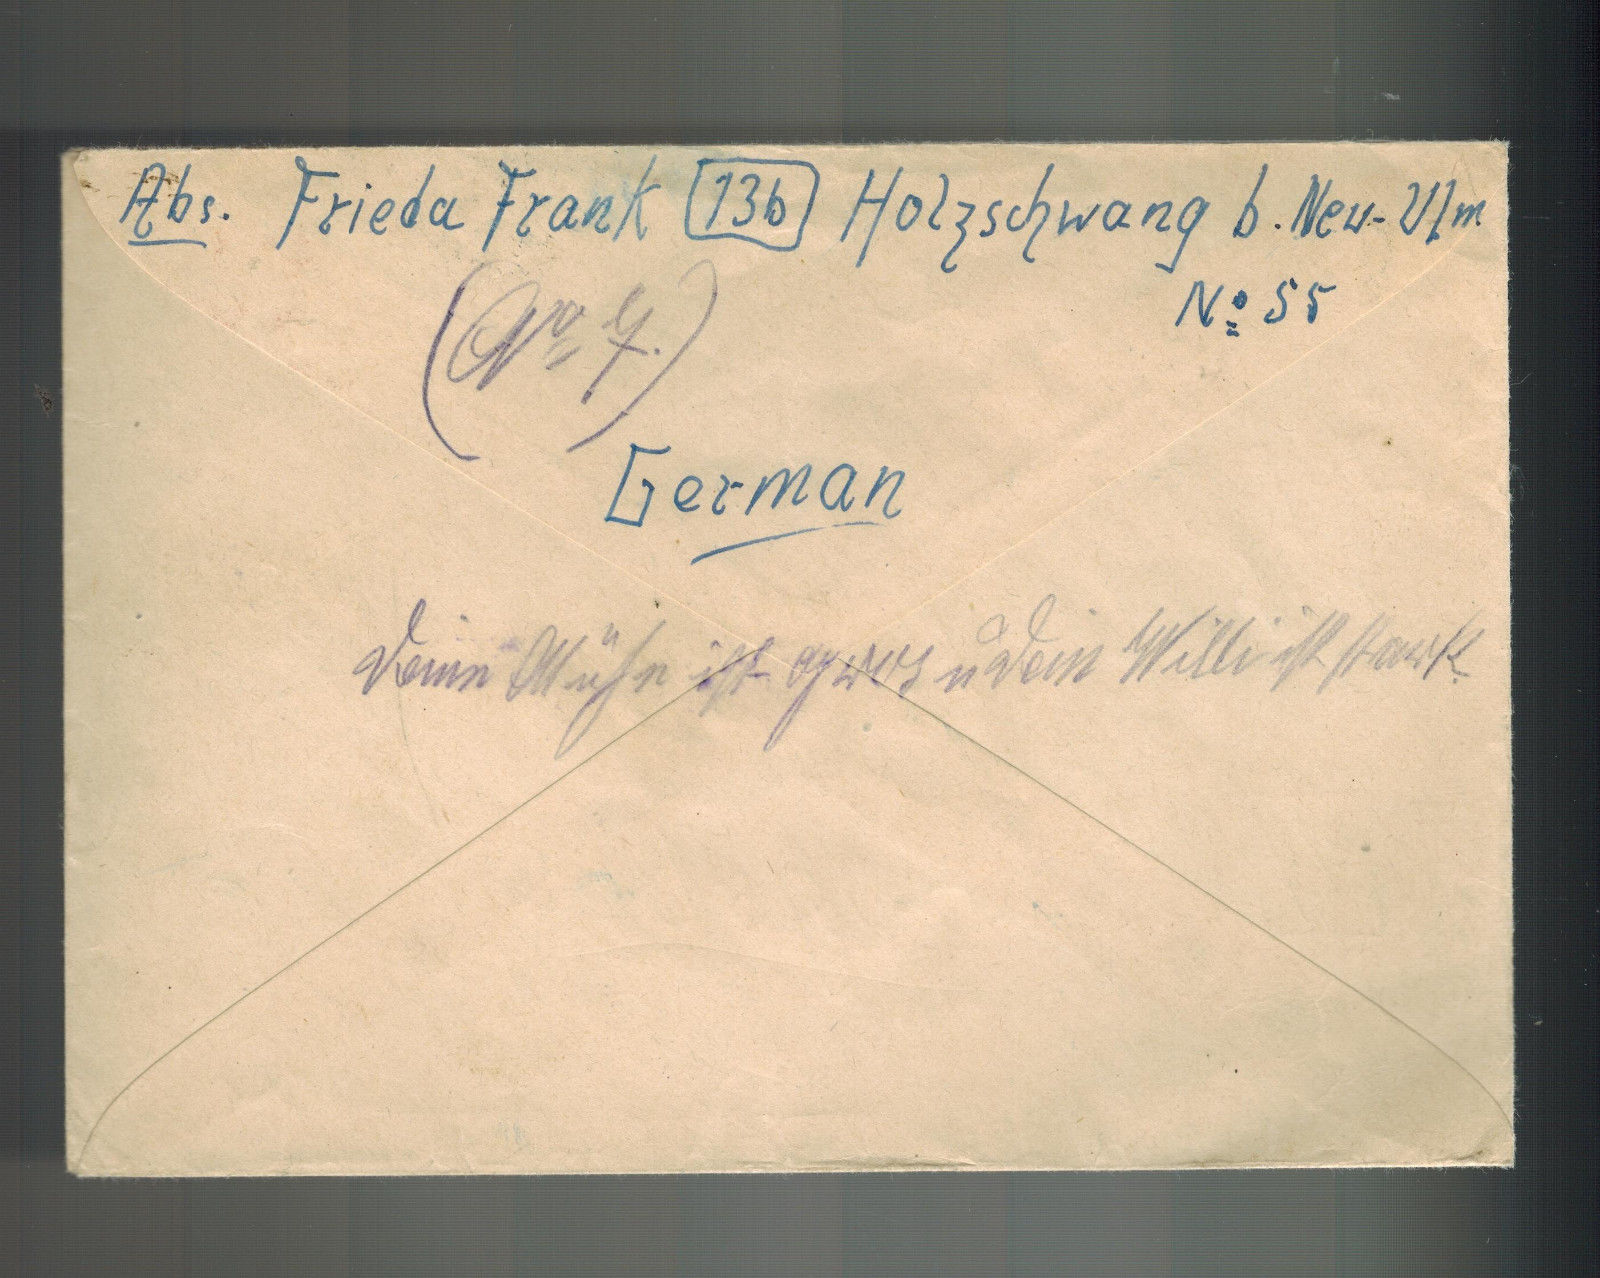 Abs. Frieda Frank 13b Holzschwang b. Neu-Ulm
No 55
(No 4.)
German
Deine Mühe ist gros u dein Willi ist stark